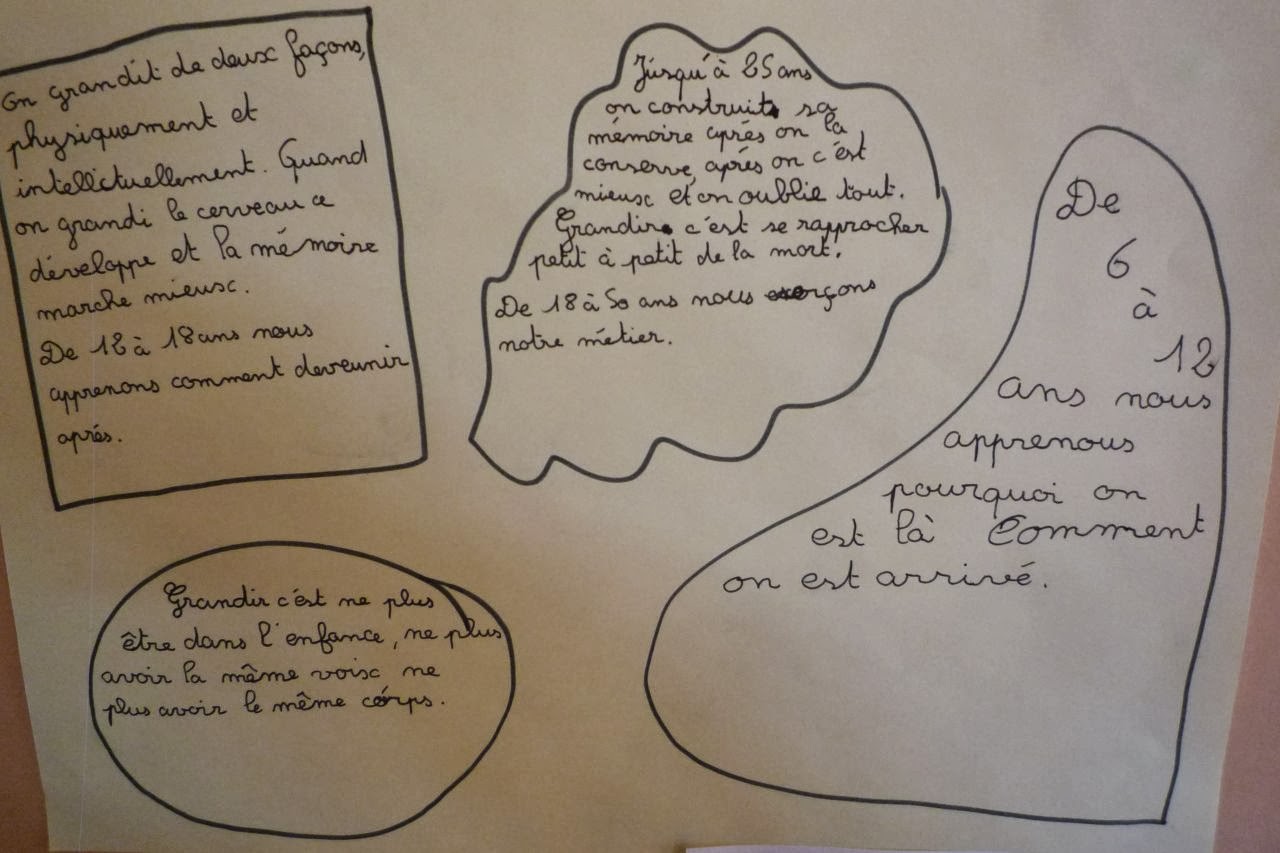 On grandit de deux façons,
physiquement et
intellictuellement. Quand
on grandi le cerveau ce
développe et la mémoire
marche mieux.
De 12 à 18 ans nous
apprenons comment deveunir
aprés.
Jusqu'à 25 ans
on construit sa
mémoire aprés on la
conserve, aprés on c'est
mieux et on oublie tout.
Grandir c'est se rapprocher
petit à petit de la mort.
De 18 à 50 ans nous exerçons
notre métier.
De
6
à
12
ans nous
apprenous
pourquoi on
est là Comment
on est arrivé.
Grandir c'est ne plus
être dans l'enfance, ne plus
avoir la même voix ne
plus avoir le même corps.